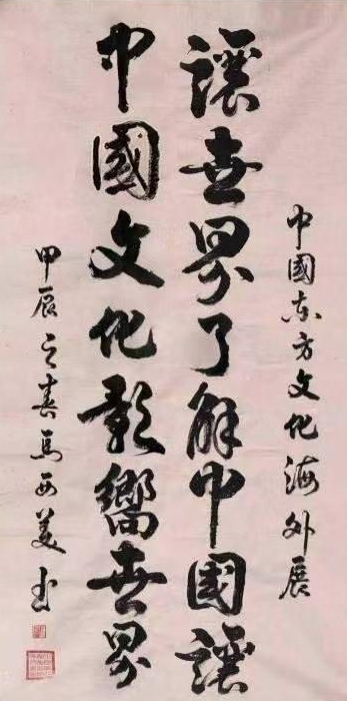 中國东方文化海外展
讓世界了解中国讓
中國文化影響世界
甲辰之春馬西美书